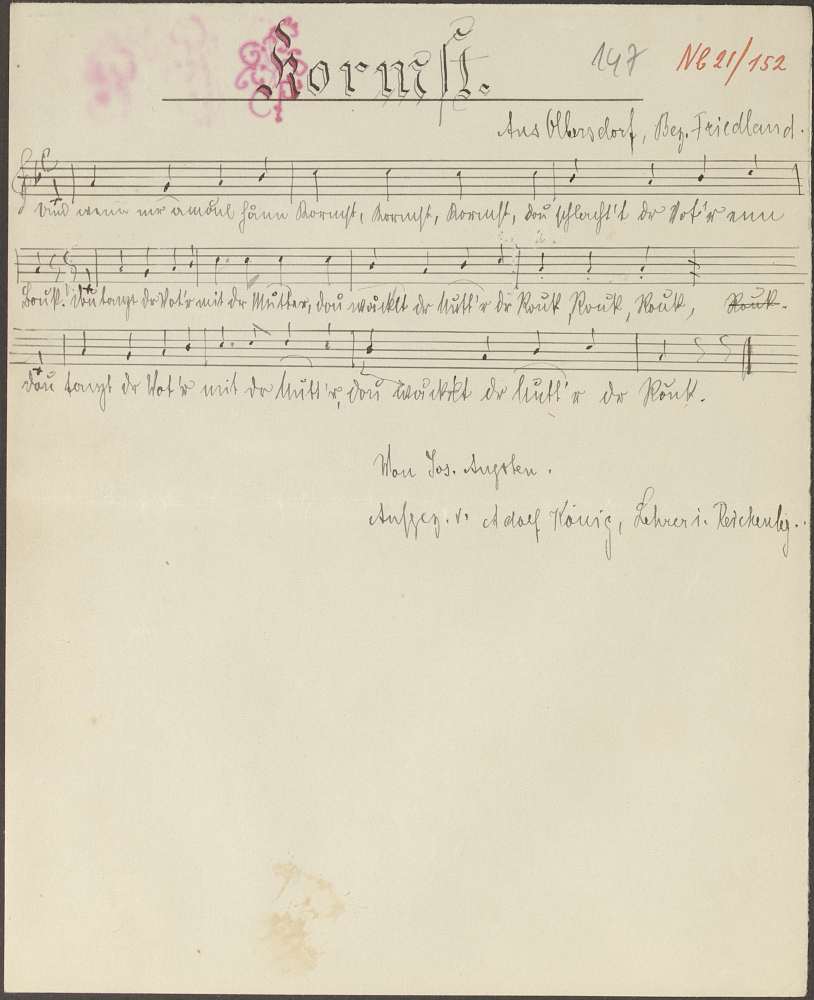 Kormst.
147
NB 21/152
Aus Ollersdorf, Bez. Friedland.
Und wenn mr amoul hånn Kormst, Kormst, Kormst, dou schlacht't dr Vot'r enn
Bouk. dou tanzt dr Vot'r mit dr Mutter, dou wackelt dr Mutt'r dr Rouk, Rouk, Rouk, Rouk.
dou tanzt dr Vot'r mit dr Mutt'r, dou wackelt dr Mutt'r dr Rouk.
Von Jos. Augsten.
Aufgez. v. Adolf König, Lehrer i. Reichenbg.